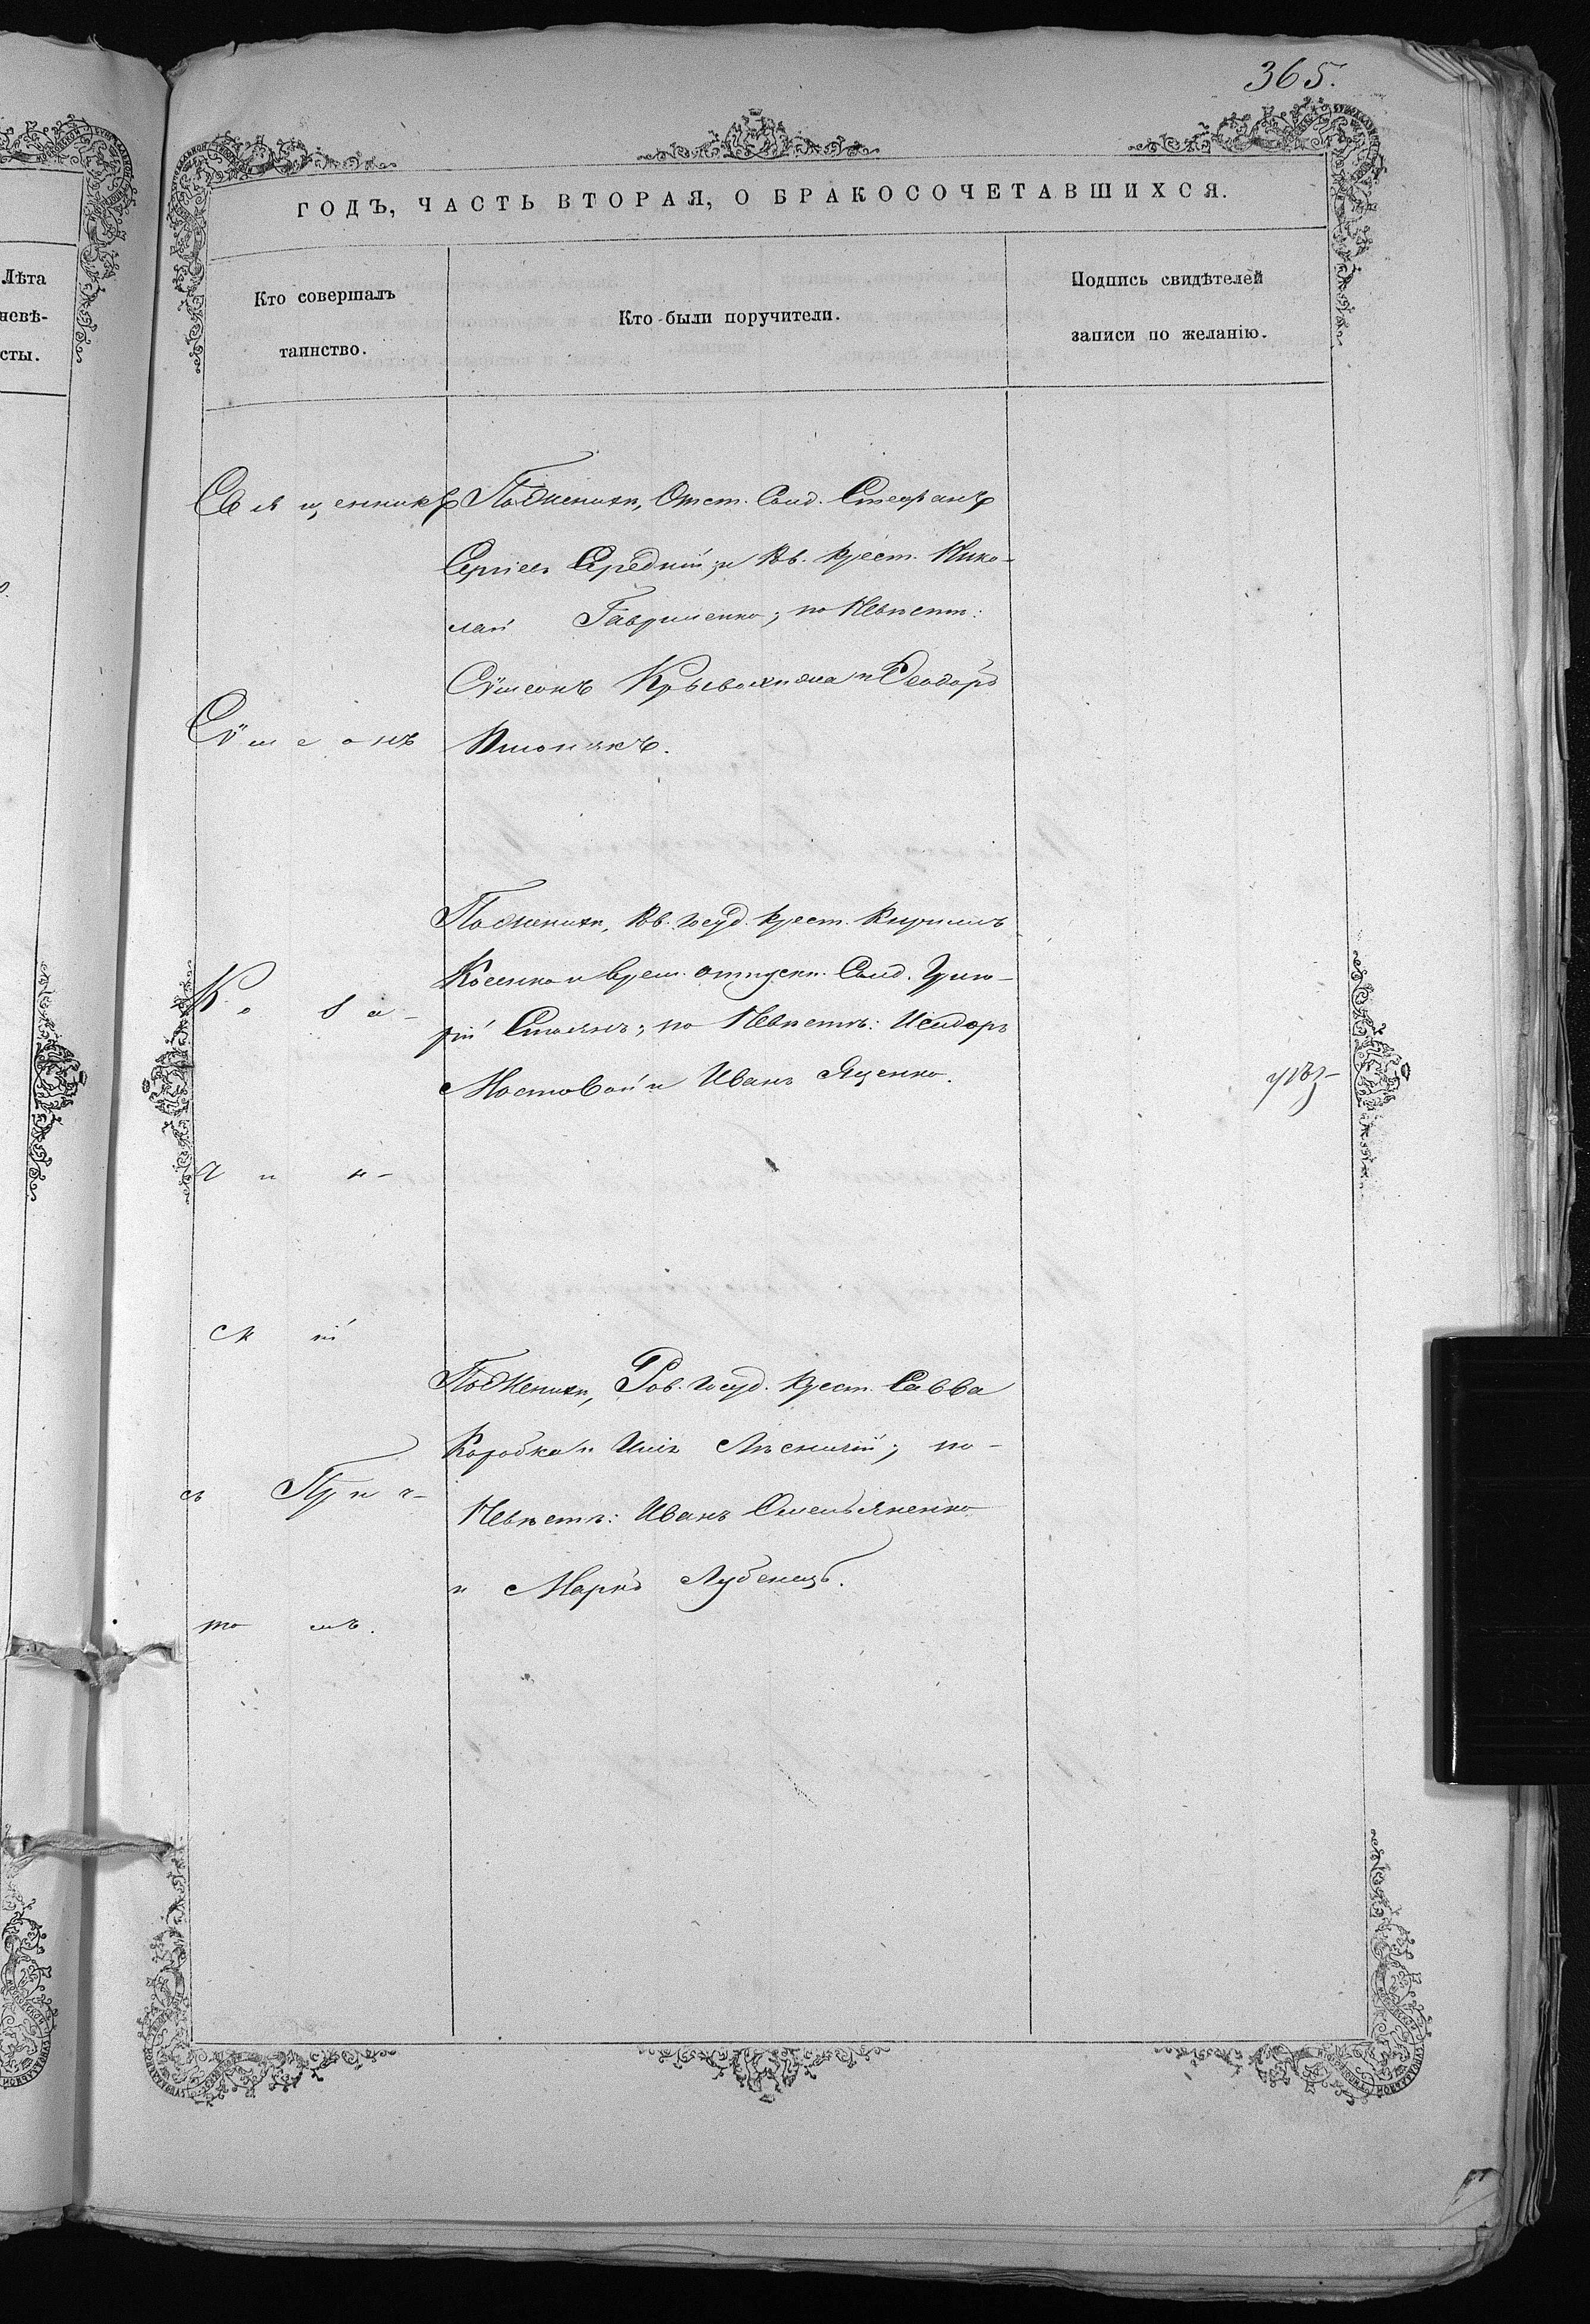 365.
ГОДЪ, ЧАСТЬ ВТОРАЯ, О БРАКОСОЧЕТАВШИХСЯ.
Лѣта
невѣ-
сты.
Кто совершалъ
таинство.
Кто были поручители.
Подпись свидѣтелей
записи по желанію.
Священникъ
Сѵмеонъ
Ко ва-
л и н-
ск ій
съ Прич-
то мъ.
По Женихѣ, Отст. Солд. Стефанъ
Сергіевъ Середній, и Кв. Крест. Нико-
лай Гавриленко; по Невѣстѣ:
Сѵмеонъ Кры и Ѳеодоръ
По Женихѣ, Кв. госуд. Крест. Кириллъ
Косенко и врем. отпускн. Солд. Григо-
рій Стоянъ; по Невѣстѣ: Исидоръ
Мостовой и Иванъ Яценко.
По Женихѣ, госуд. Крест. Савва
Коробка и Илія Лѣсничій; по
Невѣстѣ: Иванъ Омельяненко
и Марко Лубенецъ.